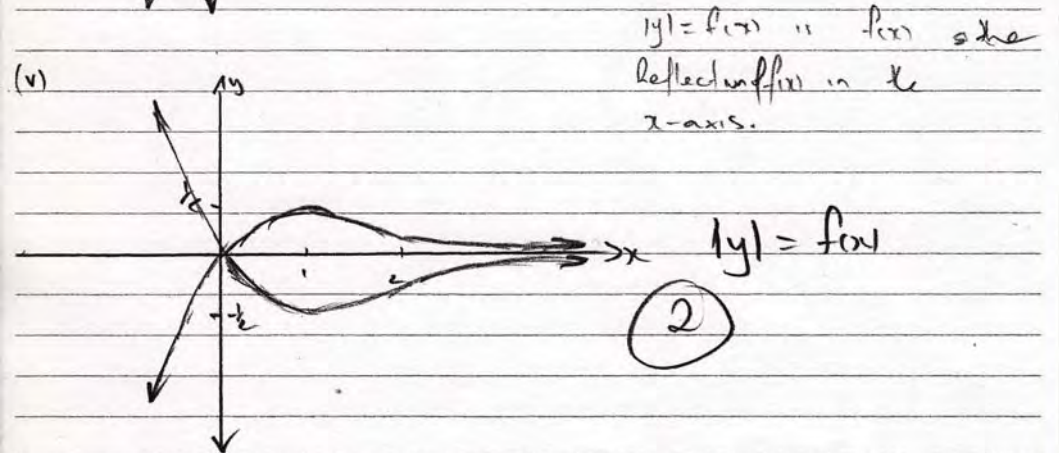 |y| = f(x) is f(x) & the
Reflection of f(x) in the
x-axis.
(v)
y
1/e
1
2
x
|y| = f(x)
-1/e
2